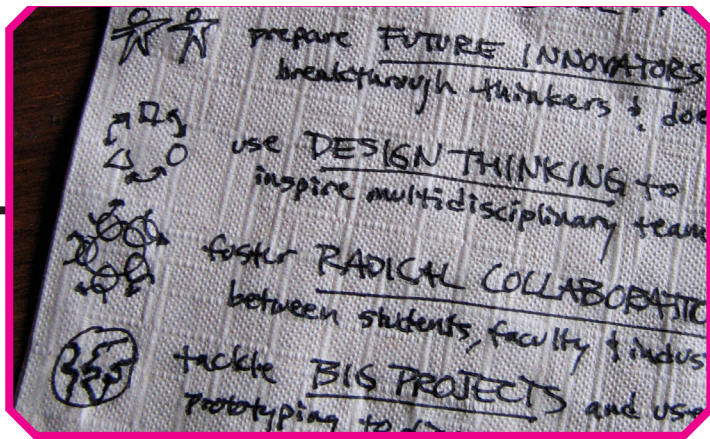 prepare FUTURE INNOVATORS
breakthrough thinkers & doe
use DESIGN THINKING to
inspire multidisciplinary team
foster RADICAL COLLABORATIO
between students, faculty & indus
tackle BIG PROJECTS and use
prototyping to